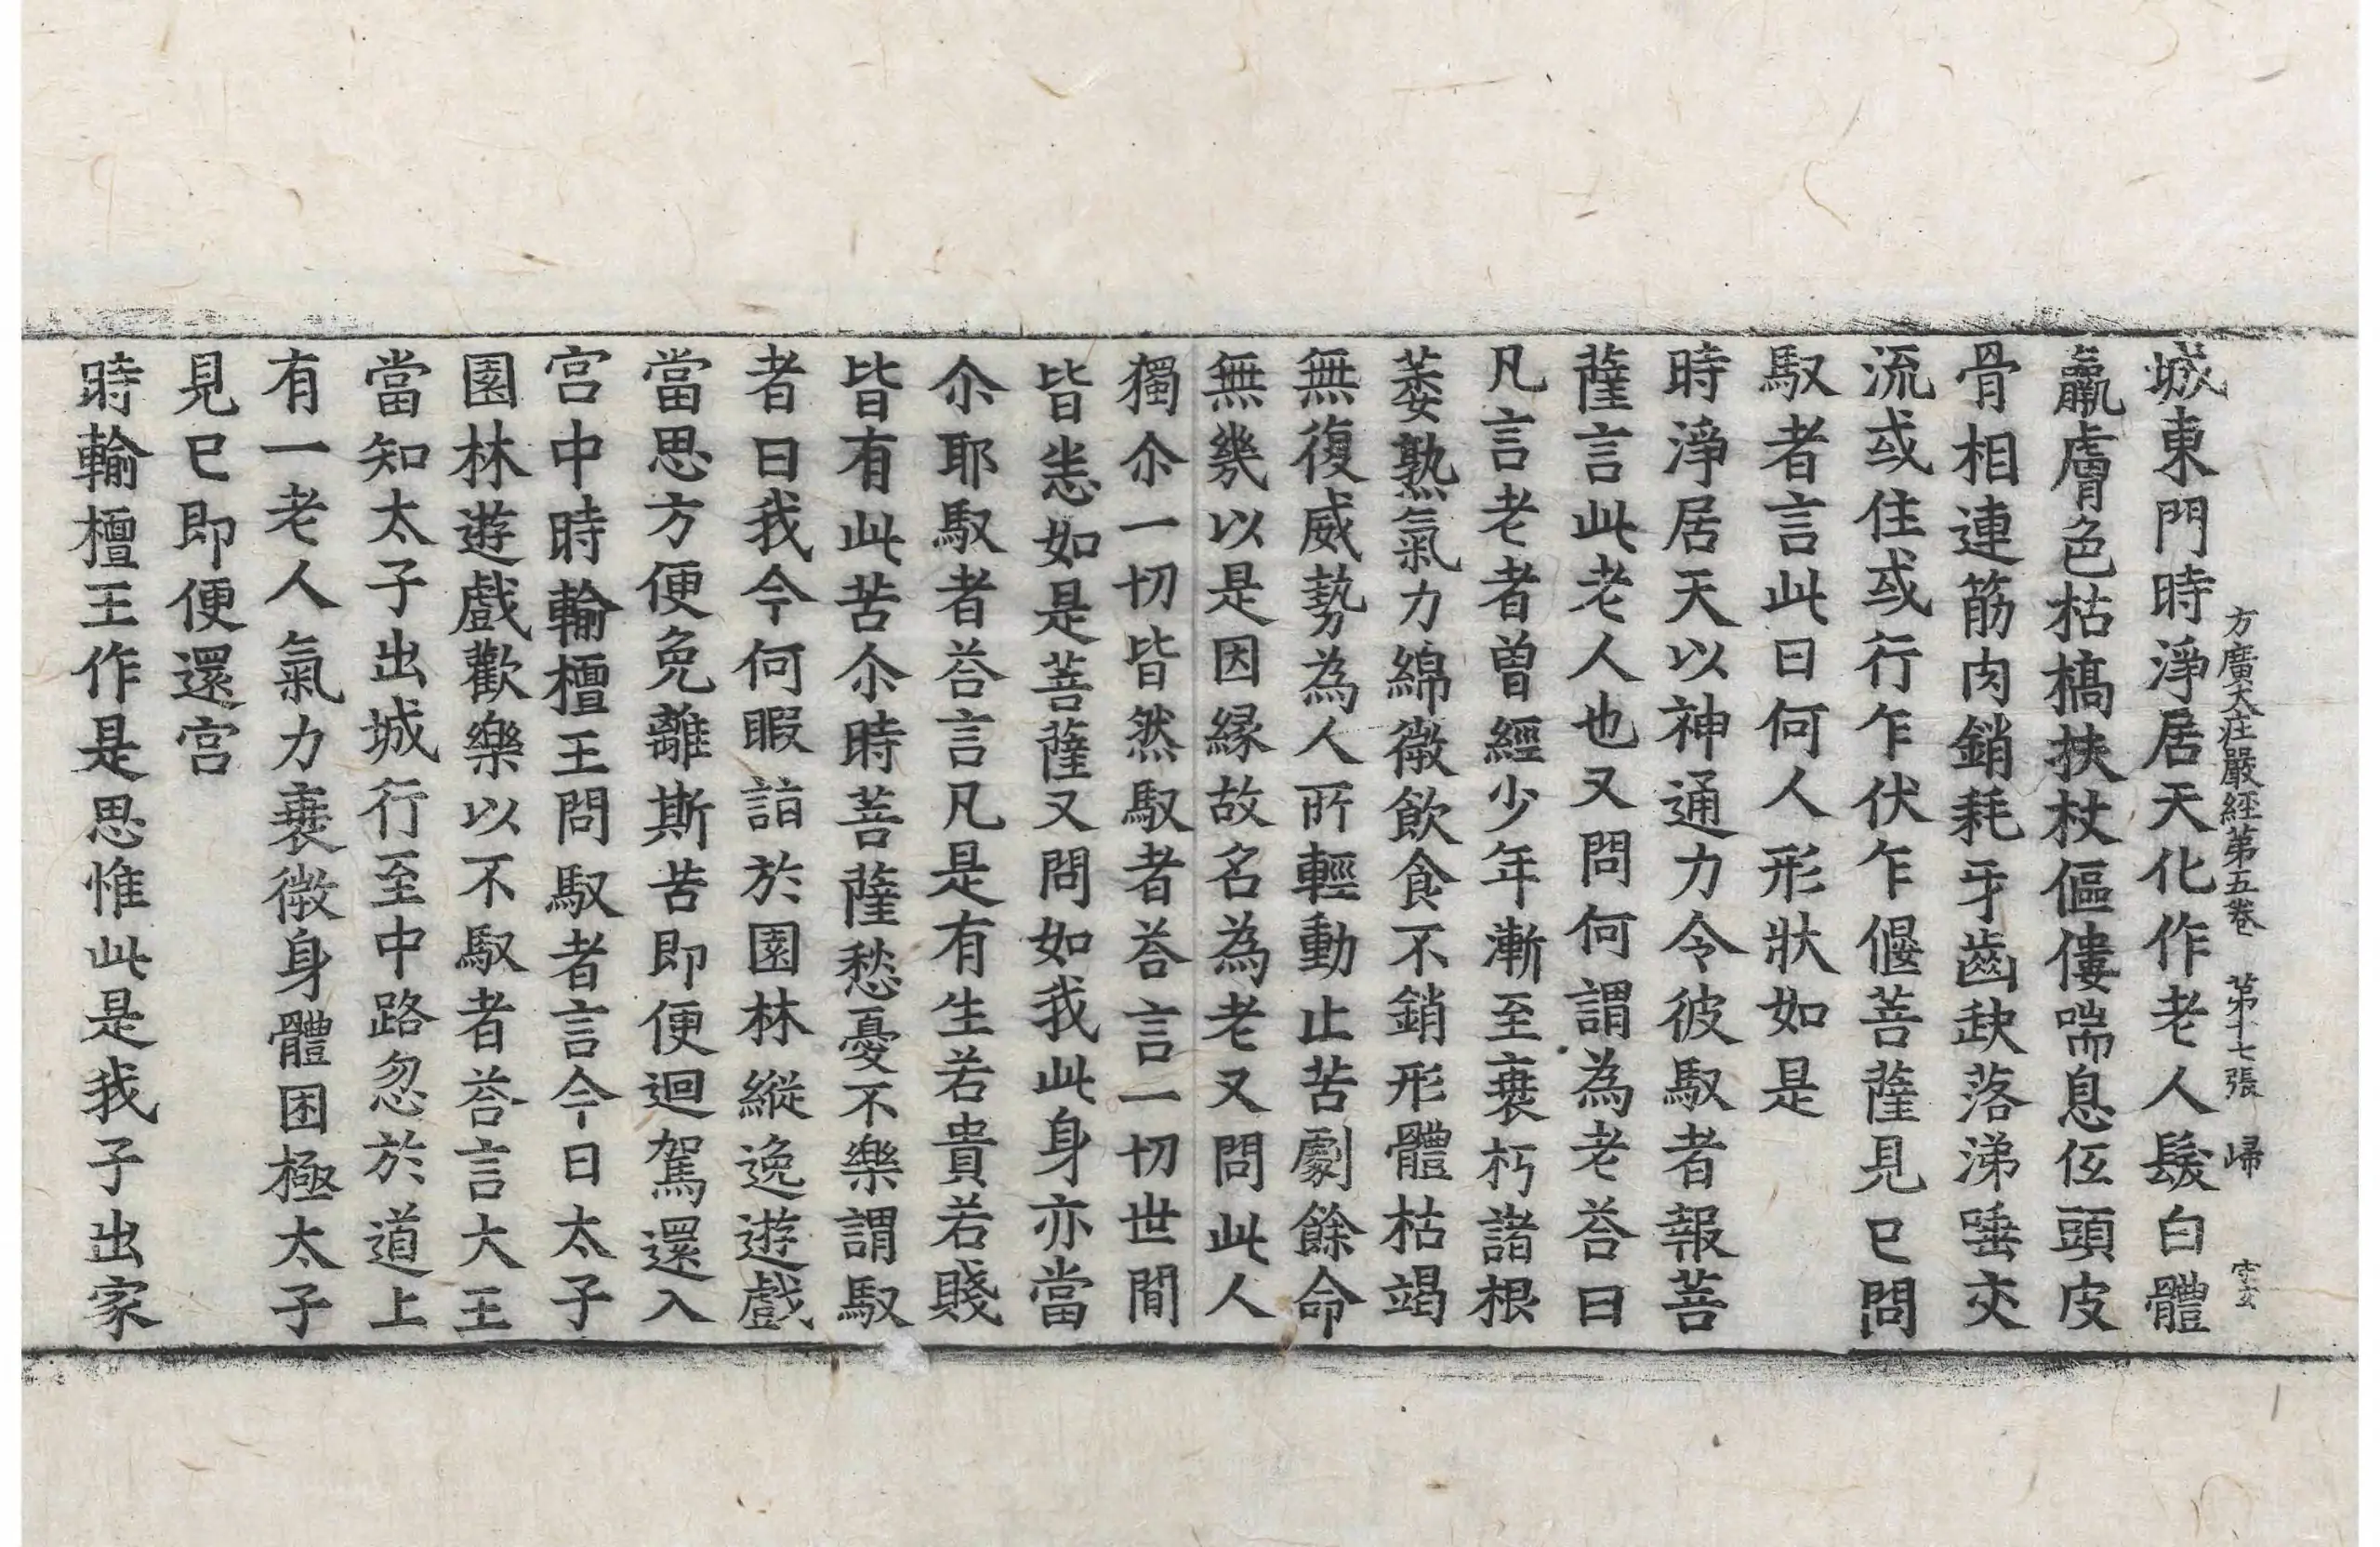 方廣大莊嚴經第五卷 第十七張 歸
城東門時淨居天化作老人髮白體
羸膚色枯槁扶杖傴僂喘息伍頭皮
骨相連筋肉銷耗牙齒缺落涕唾交
流或住或行乍伏乍偃菩薩見已問
馭者言此曰何人形狀如是
時淨居天以神通力令彼馭者報菩
薩言此老人也又問何謂為老荅曰
凡言老者曾經少年漸至衰朽諸根
萎熟氣力綿微飲食不銷形體枯竭
無復威勢為人所輕動止苦劇餘命
無幾以是因緣故名為老又問此人
獨尒一切皆然馭者荅言一切世間
皆悉如是菩薩又問如我此身亦當
尒耶馭者荅言凡是有生若貴若賤
皆有此苦尒時菩薩愁憂不樂謂馭
者曰我今何暇詣於園林縱逸遊戲
當思方便免離斯苦即便迴駕還入
宮中時輸檀王問馭者言今日太子
園林遊戲歡樂以不馭者荅言大王
當知太子出城行至中路忽於道上
有一老人氣力衰微身體困極太子
見已即便還宮
時輸檀王作是思惟此是我子出家